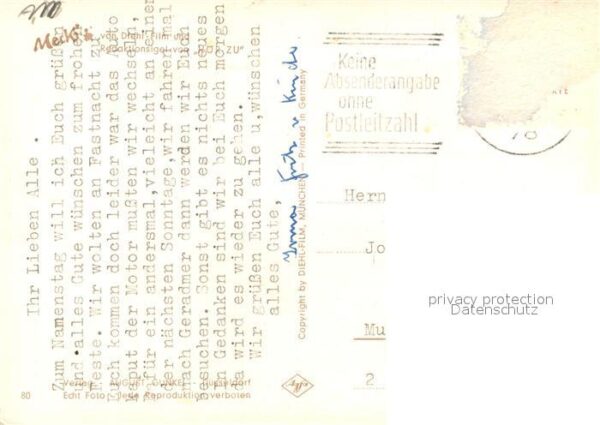 Mecki
von Diehl-Film und
Redaktionsigel von "HÖR ZU"
Ihr Lieben Alle .
Zum Namenstag will ich Euch grüßen
und alles Gute wünschen zum frohen
Feste. Wir wolten an Fastnacht zu
Euch kommen doch leider war das Auto
kaput der Motor mußten wir wechseln,
für ein andersmal, vielleicht an einer
der nächsten Sonntage, wir fahren mal
nach Geradmer dann werden wir Euch
besuchen. Sonst gibt es nichts neues
In Gedanken sind wir bei Euch morgen
da wird es wieder zu gehen.
Wir grüßen Euch alle u, wünschen
alles Gute,
Irma Fritz u Kinder
Copyright by DIEHL-FILM, MÜNCHEN — Printed in Germany
Keine
Absenderangabe
ohne
Postleitzahl
78
Hern
Jo
Mu
2
privacy protection
Datenschutz
80
Verlag AUGUST GUNKEL Düsseldorf
Echt Foto Jede Reproduktion verboten